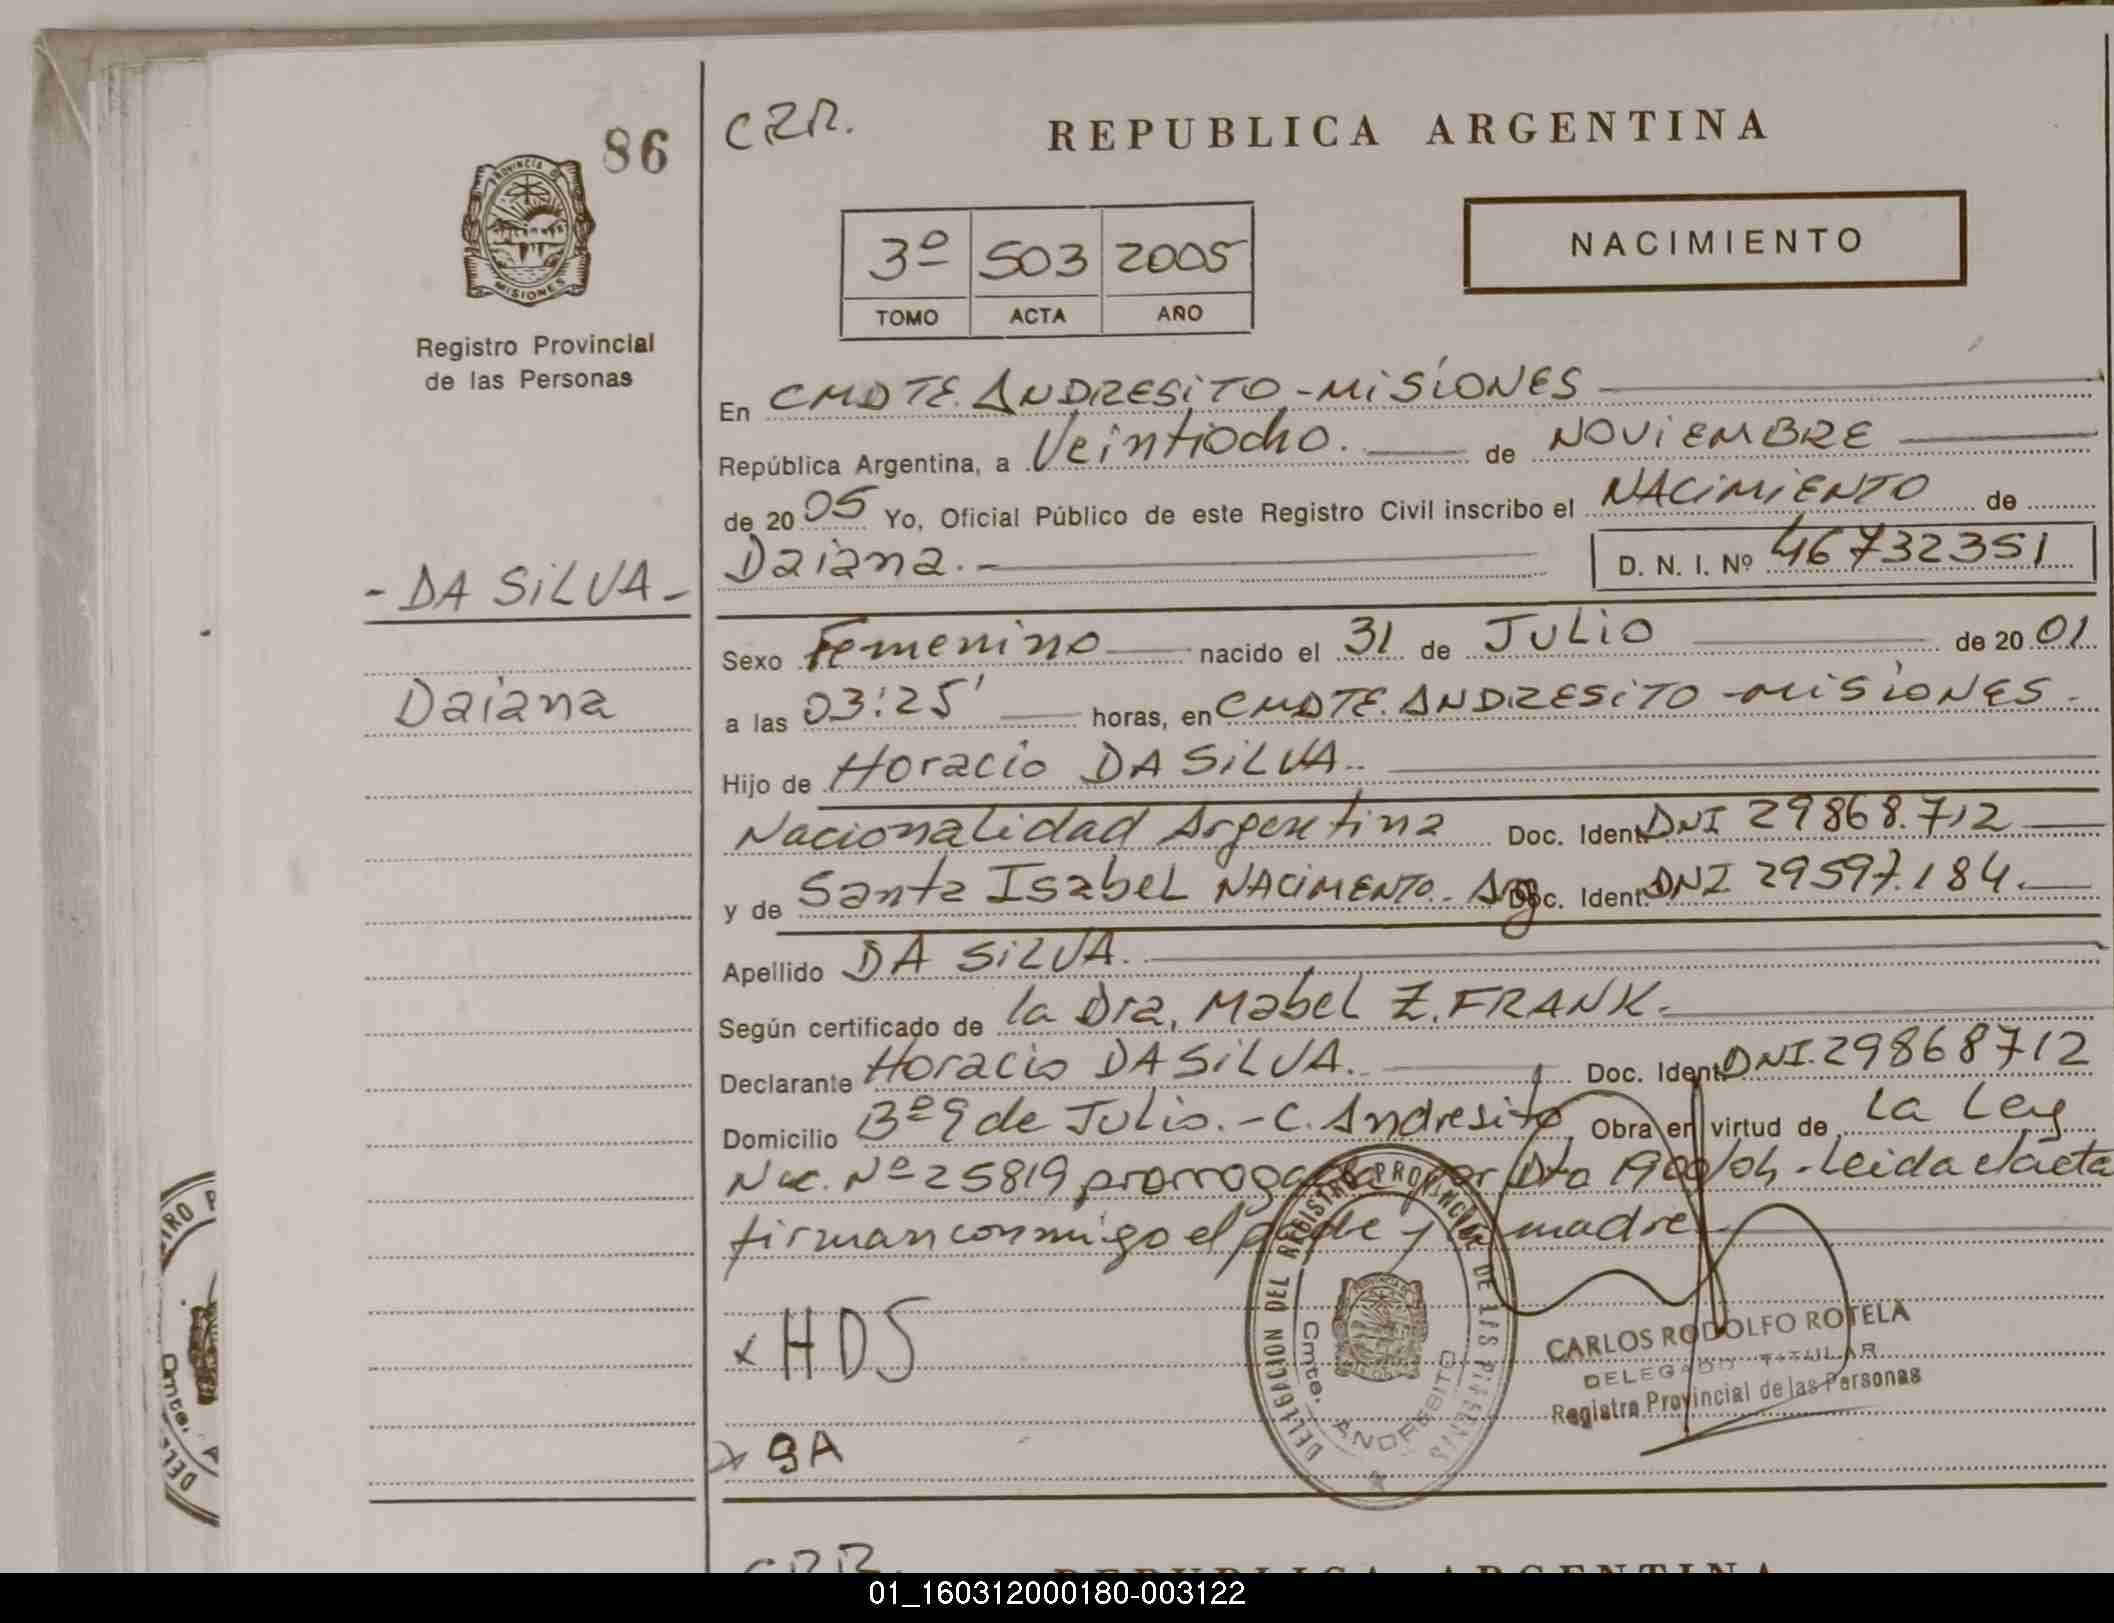 86
C.Z.R.
REPUBLICA ARGENTINA
PROVINCIA DE
MISIONES
3º 503 2005
TOMO ACTA AÑO
NACIMIENTO
Registro Provincial
de las Personas
En CMDTE. ANDRESITO - MISIONES
República Argentina, a Veintiocho. de NOVIEMBRE
de 2005 Yo, Oficial Público de este Registro Civil inscribo el NACIMIENTO de
Daiana.- D. N. I. Nº 46732351
- DA SILVA -
Daiana
Sexo Femenino nacido el 31 de JULIO de 2001
a las 03:25' horas, en CMDTE. ANDRESITO - MISIONES.
Hijo de Horacio DA SILVA..
Nacionalidad Argentina Doc. Ident. DNI 29868.712
y de Santa Isabel NACIMENTO.- Arg Doc. Ident. DNI 29597.184.
Apellido DA SILVA.
Según certificado de la Dra, Mabel Z. FRANK.
Declarante Horacio DA SILVA. Doc. Ident. DNI. 29868712
Domicilio Bº 9 de Julio. - C. Andresito Obra en virtud de la Ley
Nac. Nº 25819 prorrogada por Dto 1900/04 - Leida el acta
firman conmigo el padre y la madre
x HDS
x SA
DELEGACION DEL REGISTRO PROVINCIAL DE LAS PERSONAS
Cmte. ANDRESITO
CARLOS RODOLFO ROTELA
DELEGADO TITULAR
Registro Provincial de las Personas
REPUBLICA ARGENTINA
01_160312000180-003122